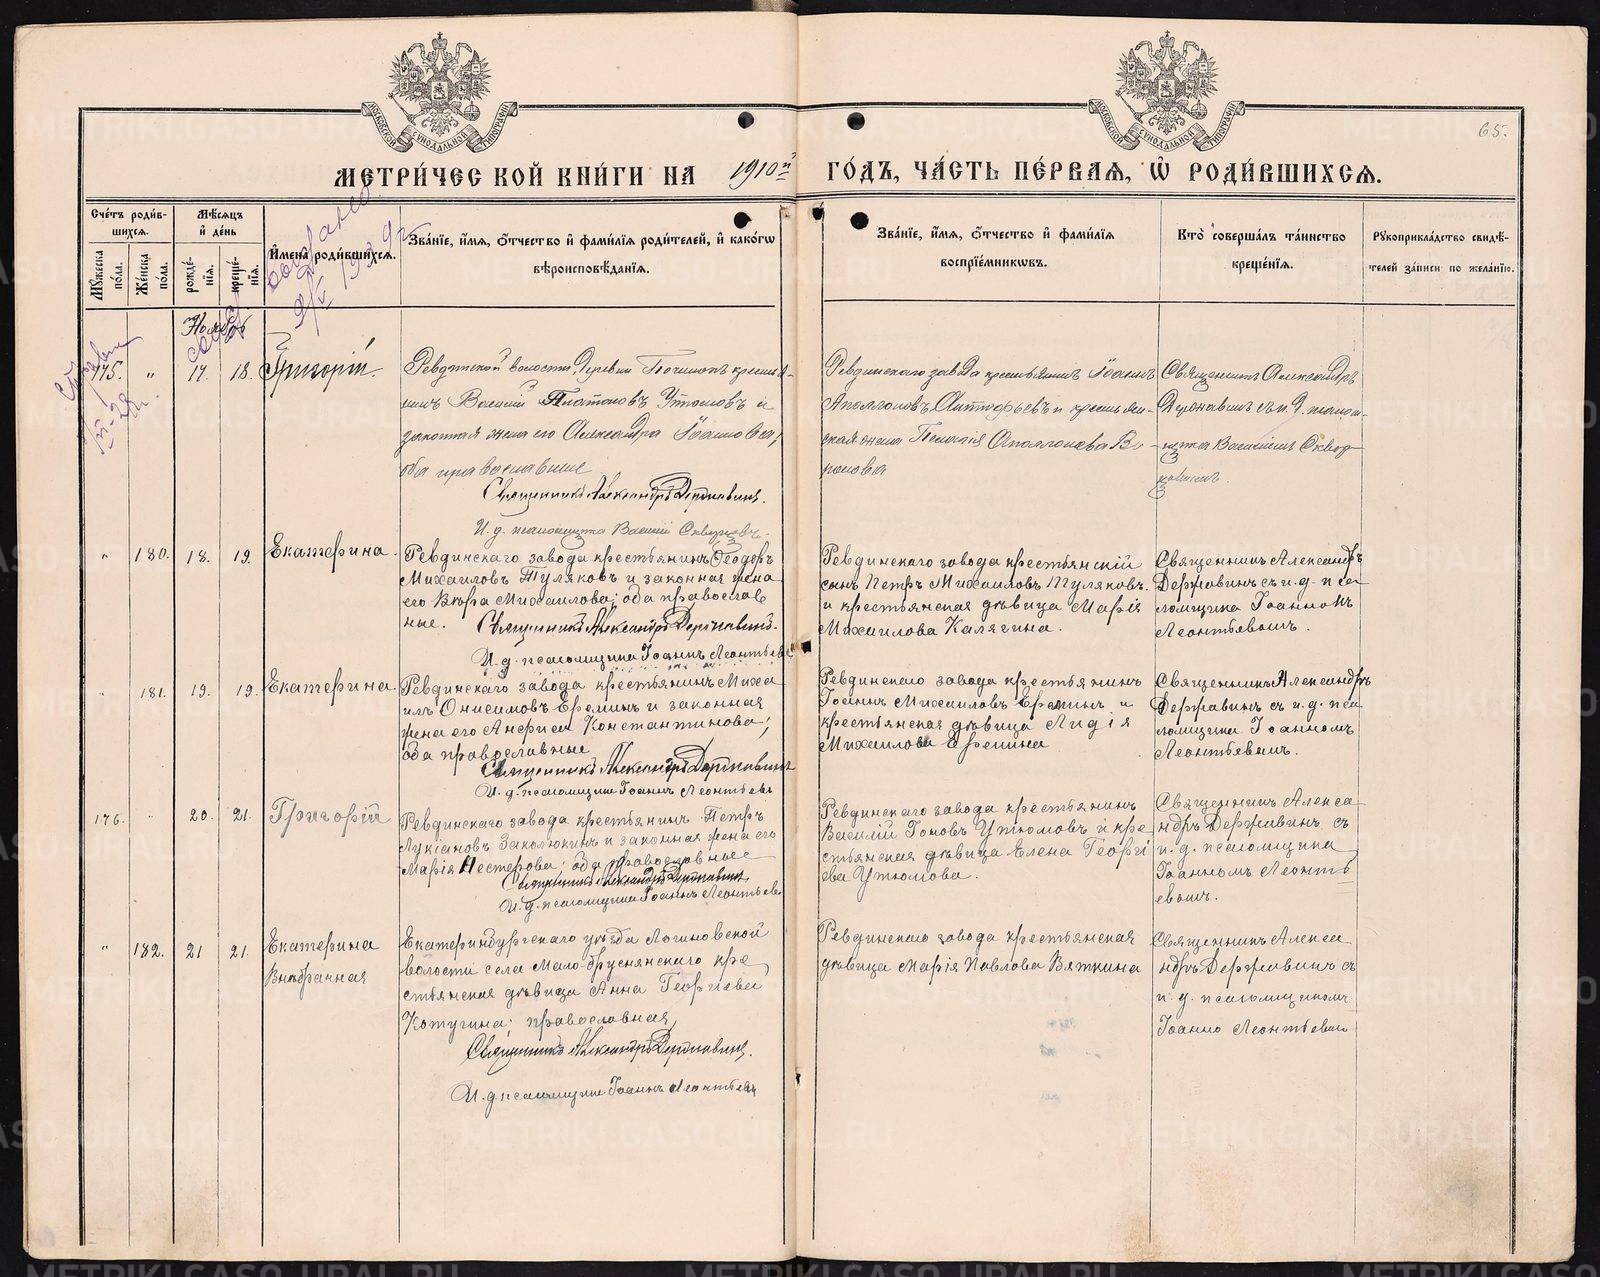 МОСКОВСКОЙ СѴНОДАЛЬНОЙ ТИПОГРАФІИ
МОСКОВСКОЙ СѴНОДАЛЬНОЙ ТИПОГРАФІИ
65.
МЕТРИ́ЧЕС КОЙ КНИ́ГИ НА 1910й ГО́ДЪ, ЧА́СТЬ ПЕ́РВАѦ, Ѡ҆ РОДИ́ВШИХСѦ.
Сче́тъ роди́вшихсѧ.
Мꙋ́жеска по́ла.
Же́нска по́ла.
Мѣ́сѧцъ и҆ де́нь
рожде́нїѧ.
креще́нїѧ.
И҆мена̀ роди́вшихсѧ.
Зва́нїе, и҆́мѧ, ѻ҆́тчество и҆ фами́лїѧ роди́телей, и҆ како́гѡ
вѣроисповѣ́данїѧ.
Зва́нїе, и҆́мѧ, ѻ҆́тчество и҆ фами́лїѧ
воспрїе́мникѡвъ.
Кто̀ соверша́лъ та́инство
креще́нїѧ.
Рꙋкоприкла́дство свидѣ́-
телей за́писи по жела́нїю.
Ноябрь
175. " 17. 18. Григорій.
Ревдинской волости, Деревни Починокъ крестья-
нинъ Василій Платоновъ Утюмовъ и
законная жена его Александра Іоаннова,
оба православные
Священникъ Александръ Державинъ.
И. д. псаломщика Василій Скворцовъ.
Ревдинскаго завода крестьянинъ Іоаннъ
Аполлоновъ Алтуфьевъ и крестьян-
ская жена Пелагія Аполлонова
Священникъ Александръ
Державинъ съ и. д. псалом-
щика Василіемъ Сквор-
цовымъ.
" 180. 18. 19. Екатерина.
Ревдинскаго завода крестьянинъ Ѳеодоръ
Михаиловъ Туляковъ и законная жена
его Вѣра Михаилова; оба православ
ные. Священникъ Александръ Державинъ.
И. д. псаломщика Іоаннъ Леонтьевъ
Ревдинскаго завода крестьянскій
сынъ Петръ Михаиловъ Туляковъ.
и крестьянская дѣвица Марія
Михаилова Калягина.
Священникъ Александръ
Державинъ съ и. д. пса
ломщика Іоанномъ
Леонтьевымъ.
" 181. 19. 19. Екатерина.
Ревдинскаго завода крестьянинъ Миха
илъ Онисимовъ Ереминъ и законная
жена его Анфиса Константинова;
оба православные
Священникъ Александръ Державинъ
И. д. псаломщика Іоаннъ Леонтьевъ
Ревдинскаго завода крестьянинъ
Іоаннъ Михаиловъ Ереминъ и
крестьянская дѣвица Лидія
Михаилова Еремина
Священникъ Александръ
Державинъ съ и. д. пса
ломщика Іоанномъ
Леонтьевымъ.
176. " 20. 21. Григорій
Ревдинскаго завода крестьянинъ Петръ
Лукіановъ Заколюкинъ и законная жена его
Марія Нестерова; оба православные
Священникъ Александръ Державинъ
И. д. псаломщика Іоаннъ Леонтьевъ
Ревдинскаго завода крестьянинъ
Василій Іоновъ Утюмовъ и кре
стьянская дѣвица Елена Георгі
ева Утюмова.
Священникъ Алекса
ндръ Державинъ съ
и. д. псаломщика
Іоанномъ Леонть
евымъ.
" 182. 21 21. Екатерина
Внѣбрачная
Екатеринбургскаго уѣзда Логиновской
волости села Мало-бруснянскаго кре
стьянская дѣвица Анна Георгіева
Котугина; православная
Священникъ Александръ Державинъ.
И. д. псаломщика Іоаннъ Леонтьевъ
Ревдинскаго завода крестьянская
дѣвица Марія Павлова Вяткина
Священникъ Алекса
ндръ Державинъ съ
и. д. псаломщикомъ
Іоанно Леонтьевым
METRIKI.GASO-URAL.RU